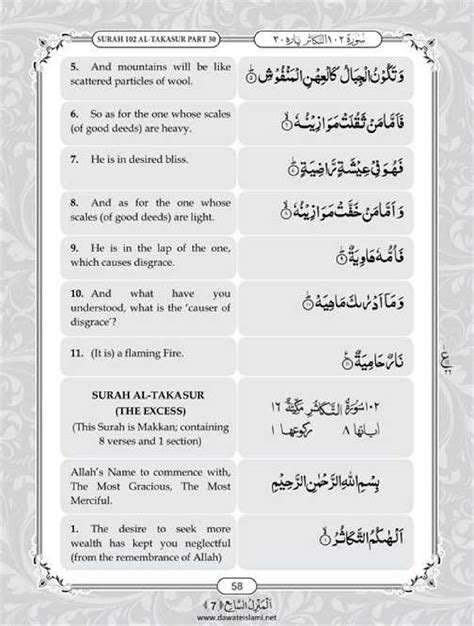 SURAH 102 AL-TAKASUR PART 30
سُوْرَةُ ١٠٢ التَّكَاثُر پارہ ٣٠
5. And mountains will be like
scattered particles of wool.
وَ تَكُوْنُ الْجِبَالُ كَالْعِهْنِ الْمَنْفُوْشِؕ۝۵
6. So as for the one whose scales
(of good deeds) are heavy.
فَاَمَّا مَنْ ثَقُلَتْ مَوَازِیْنُهٗۙ۝۶
7. He is in desired bliss.
فَهُوَ فِیْ عِیْشَةٍ رَّاضِیَةٍؕ۝۷
8. And as for the one whose
scales (of good deeds) are light.
وَ اَمَّا مَنْ خَفَّتْ مَوَازِیْنُهٗۙ۝۸
9. He is in the lap of the one,
which causes disgrace.
فَاُمُّهٗ هَاوِیَةٌؕ۝۹
10. And what have you
understood, what is the ‘causer of
disgrace’?
وَ مَاۤ اَدْرٰىكَ مَاهِیَهْؕ۝۱۰
11. (It is) a flaming Fire.
نَارٌ حَامِیَةٌ۝۱۱
SURAH AL-TAKASUR
(THE EXCESS)
(This Surah is Makkan; containing
8 verses and 1 section)
١٠٢ سُوْرَةُ التَّكَاثُرِ مَكِّيَّةٌ ١٦
اٰياتها ٨ ركوعها ١
Allah’s Name to commence with,
The Most Gracious, The Most
Merciful.
بِسْمِ اللّٰهِ الرَّحْمٰنِ الرَّحِیْمِ
1. The desire to seek more
wealth has kept you neglectful
(from the remembrance of Allah)
اَلْهٰىكُمُ التَّكَاثُرُۙ۝۱
58
اَلْمَنْزِلُ السَّابِع ﴿7﴾
www.dawateislami.net